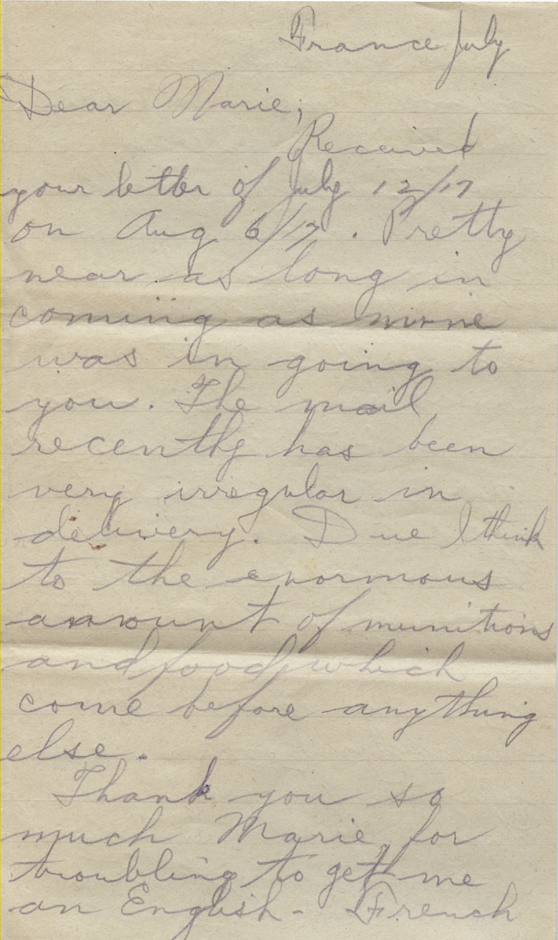 France July
Dear Marie;
Received
your letter of July 12/17
on Aug 6/17. Pretty
near as long in
coming as mine
was in going to
you. The mail
recently has been
very irregular in
delivery. Due I think
to the enormous
amount of munitions
and food which
come before anything
else.
Thank you so
much Marie, for
troubling to get me
an English - French